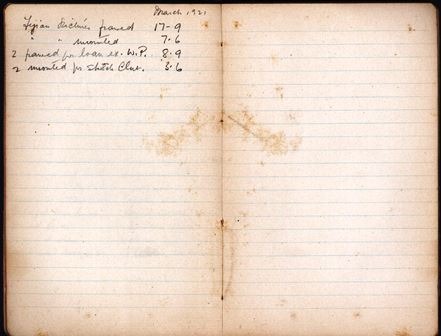 March 1921
Fijian Pictures framed 17-9
" " mounted 7.6
2 framed for loan ex. W.P. 8.9
2 mounted for Sketch Club. 3.6